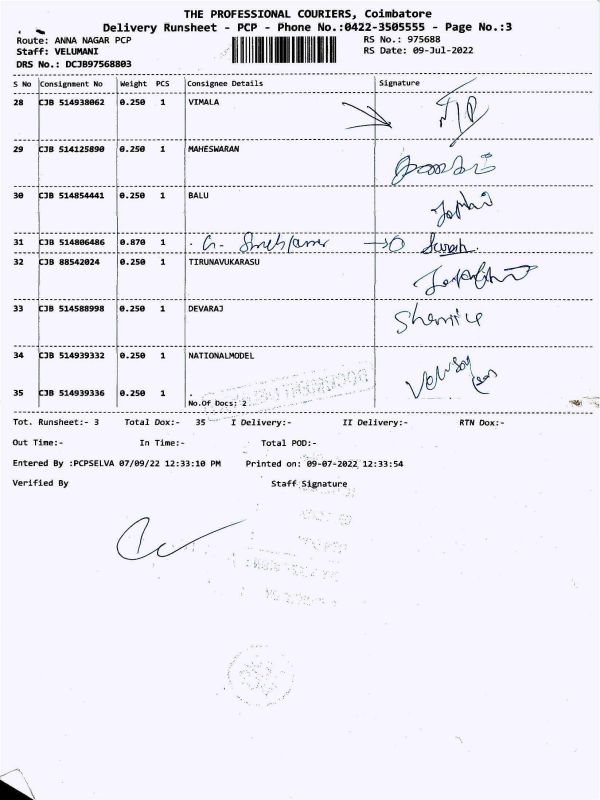 THE PROFESSIONAL COURIERS, Coimbatore
Delivery Runsheet - PCP - Phone No.:0422-3505555 - Page No.:3
Route: ANNA NAGAR PCP RS No.: 975688
Staff: VELUMANI RS Date: 09-Jul-2022
DRS No.: DCJB97568803
S No Consignment No Weight PCS Consignee Details Signature
28 CJB 514938062 0.250 1 VIMALA
29 CJB 514125890 0.250 1 MAHESWARAN
30 CJB 514854441 0.250 1 BALU
31 CJB 514806486 0.870 1 . G.
32 CJB 88542024 0.250 1 TIRUNAVUKARASU
33 CJB 514588998 0.250 1 DEVARAJ
34 CJB 514939332 0.250 1 NATIONALMODEL
35 CJB 514939336 0.250 1 .
No.Of Docs; 2
Tot. Runsheet:- 3 Total Dox:- 35 I Delivery:- II Delivery:- RTN Dox:-
Out Time:- In Time:- Total POD:-
Entered By :PCPSELVA 07/09/22 12:33:10 PM Printed on: 09-07-2022 12:33:54
Verified By Staff Signature